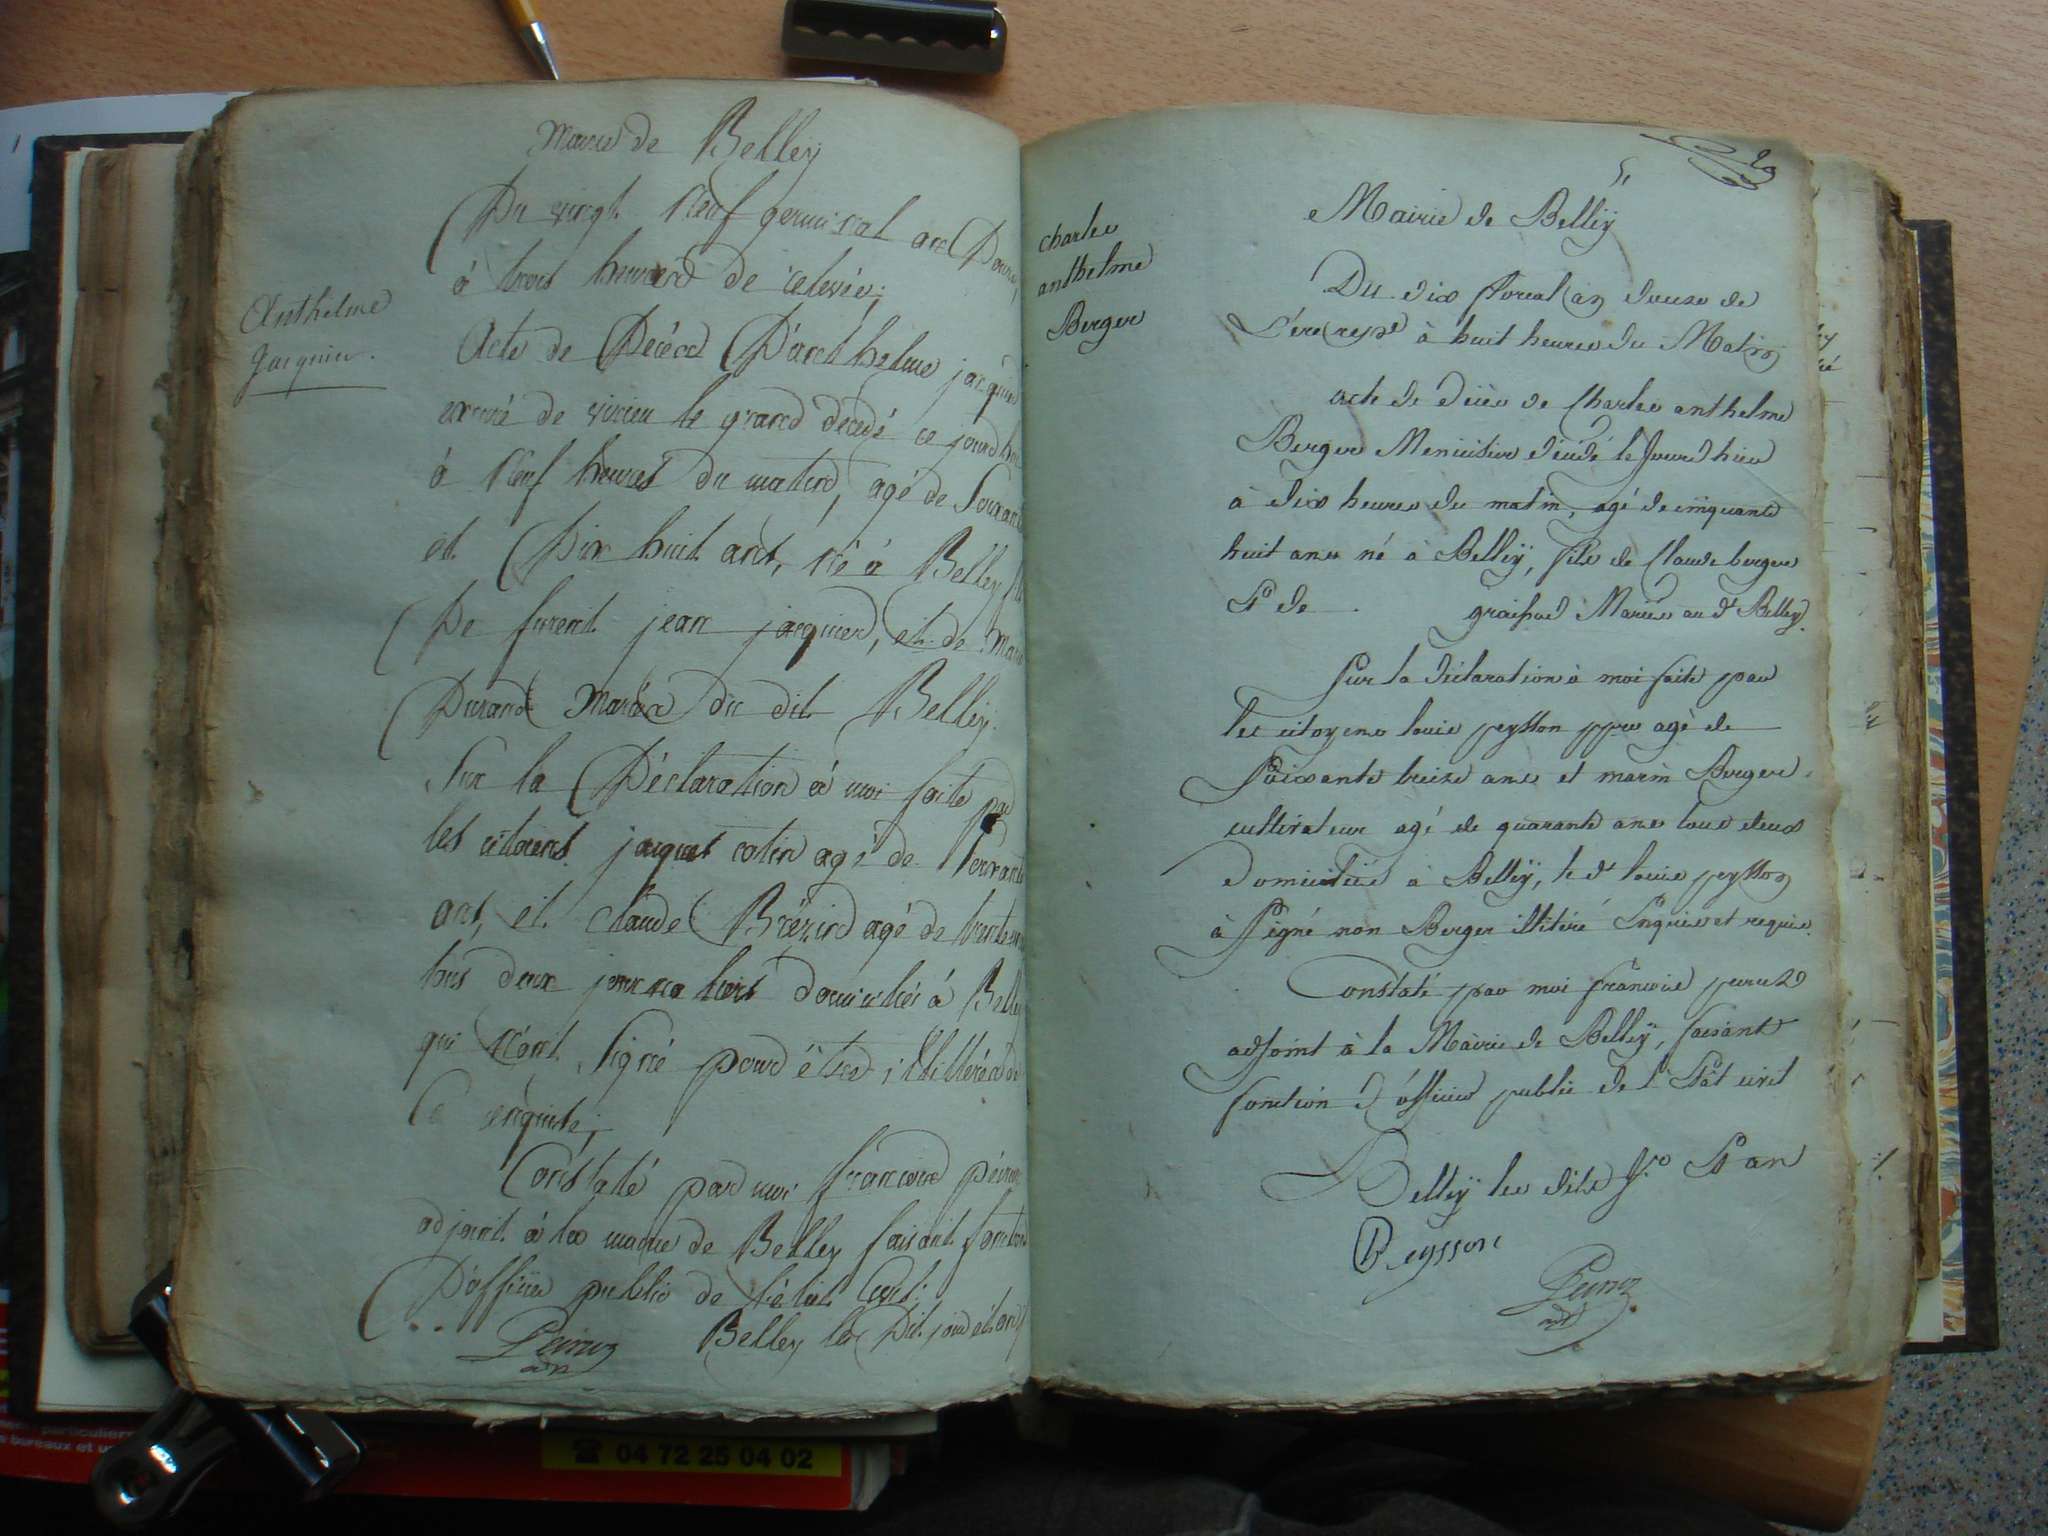 Mairie de Belleÿ
Du vingt Neuf germinal an Douze,
à trois heures de relevée;
Anthelme
Jacquier.
Acte de Décés D'anthelme jacquier
de virieu le grand décédé ce jourd'hui
à Neuf heures du matin, agé de Soixante
et Dix huit ans, né à Belley fils
De furent jean jacquier, et de Marie
Durand Mariés du dit Belleÿ.
Sur la Déclaration à moi faite par
les citoiens jacques cotin agé de Soixante
ans, et claude Brézin agé de trente
tous deux journaliers domiciliés à Belley
qui n'ont Signé pour être illittérés de
Ce enquite;
Constaté par moi françois péruz
adjoint à la mairie de Belley faisant fonction
D'officier public de l'état Civil:
Belley les Dit jour et an
Peruz
adn
charles
anthelme
Berger
Mairie de Belleÿ
Du dix floreal an douze de
L'ère rep.e à huit heures du Matin
acte de décès de Charles anthelme
Berger Menuisier décédé le Jourd'hier
à dix heures du matin, agé de cinquante
huit ans né à Belleÿ, fils de Claude berger
& de graissard Mariés au dt Belley.
Sur la déclaration à moi faite par
les citoyens louis peysson ppre agé de
Soixante treize ans et marin Berger
cultivateur agé de quarante ans tous deux
domiciliés à Belleÿ, le dt louis peysson
à Signé non Berger illitéré Enquis et requis.
Constaté par moi françois peruz
adjoint à la Mairie de Belleÿ, faisant
fonction d'officier public de l'Etat civil
Belleÿ les dits Jr & an
Peysson
Peruz
adt
04 72 25 04 02
particuliers
bureaux et u